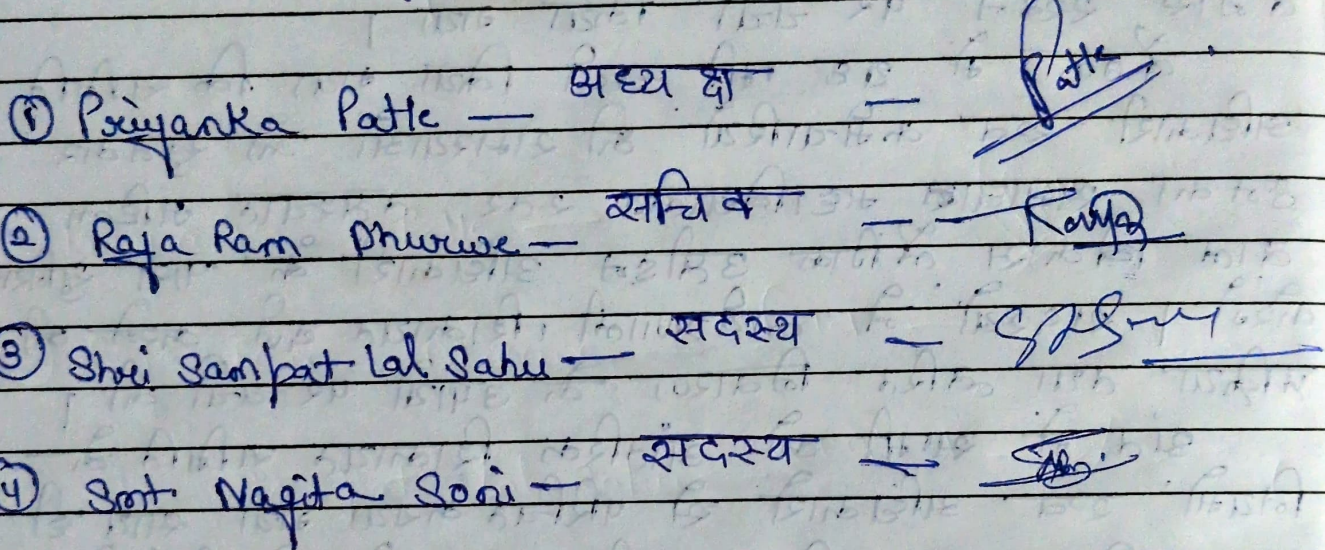 ① Priyanka Patle — अध्यक्ष —
② Raja Ram Dhurwe — सचिव —
③ Shri Sampat Lal Sahu — सदस्य —
④ Smt. Nagita Soni — सदस्य —